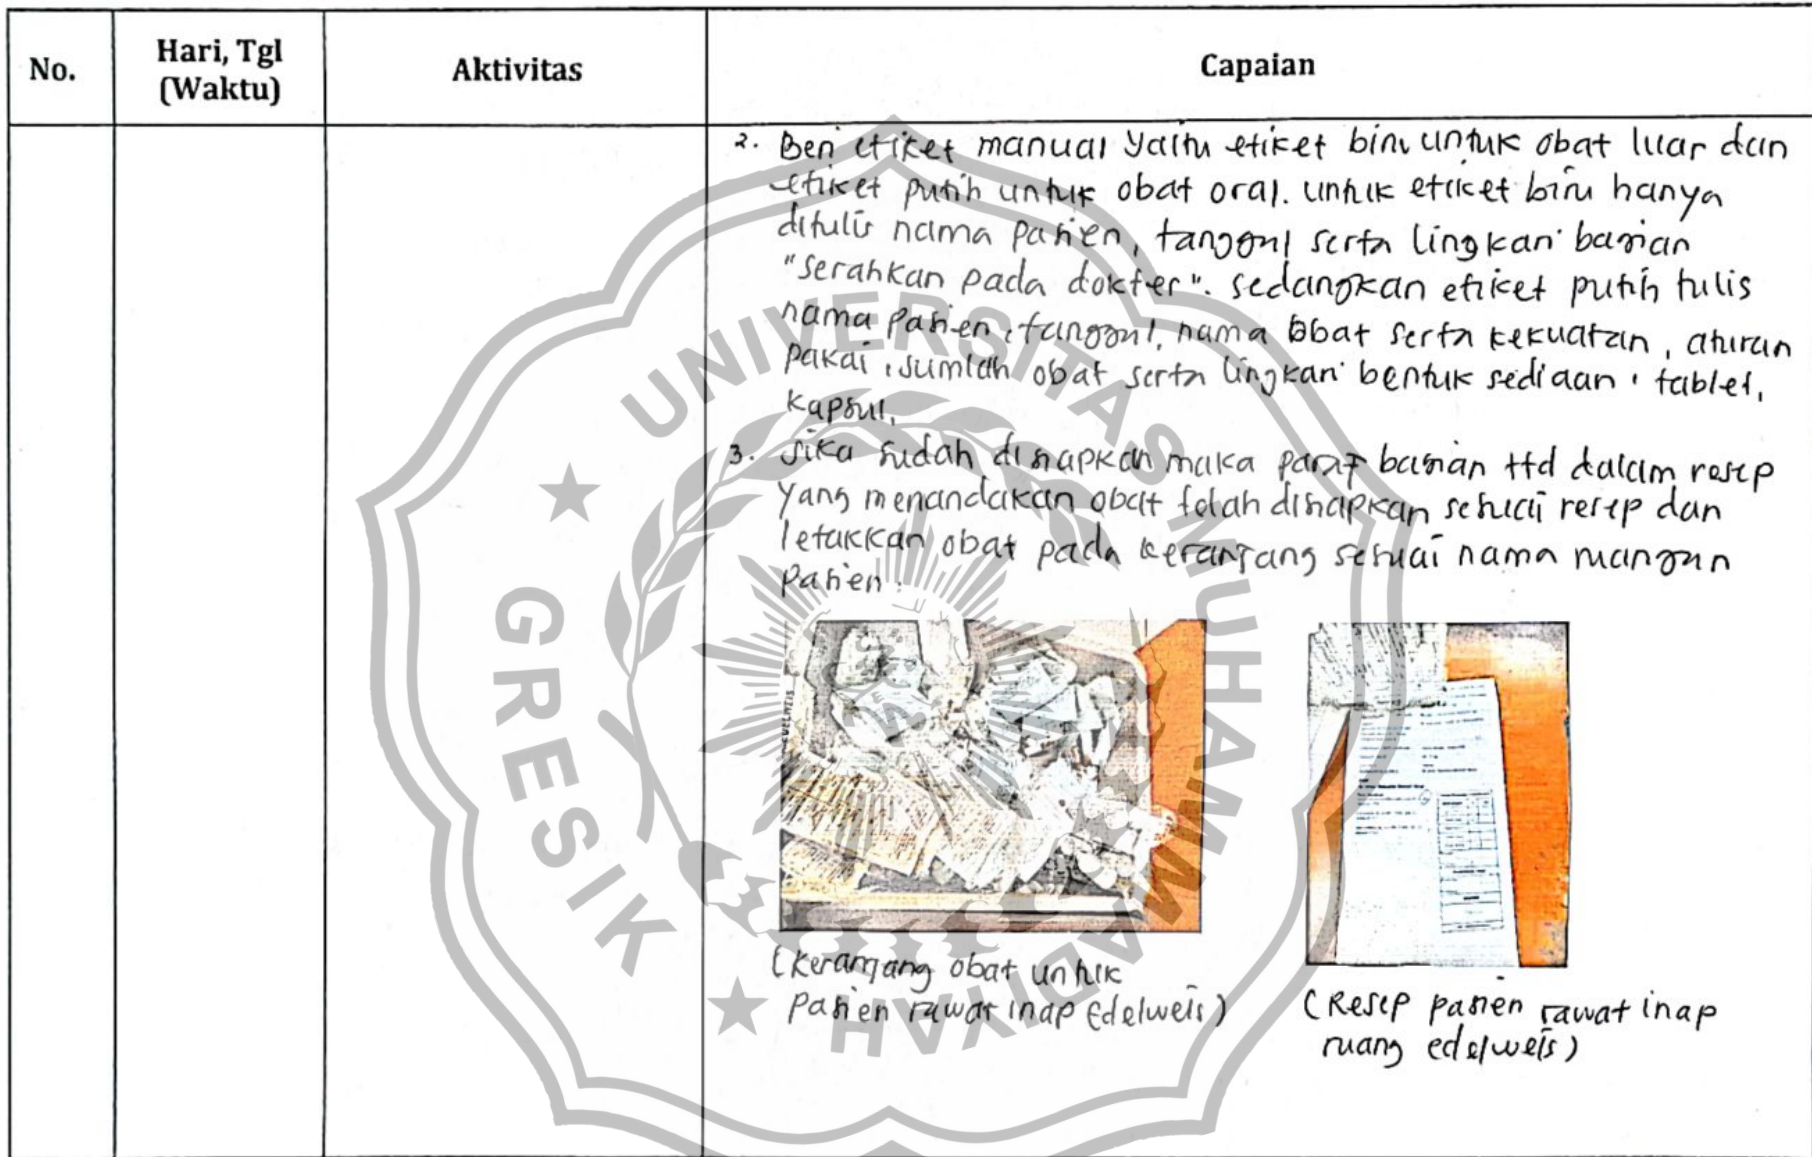 No.
Hari, Tgl
(Waktu)
Aktivitas
Capaian
2. Beri etiket manual yaitu etiket biru untuk obat luar dan
etiket putih untuk obat oral. untuk etiket biru hanya
ditulis nama pasien, tanggal serta lingkari bagian
"serahkan pada dokter". sedangkan etiket putih tulis
nama pasien, tanggal, nama obat serta kekuatan, aturan
pakai, jumlah obat serta lingkari bentuk sediaan, tablet,
kapsul,
3. Jika sudah disiapkan maka paraf bagian ttd dalam resep
yang menandakan obat telah disiapkan sesuai resep dan
letakkan obat pada keranjang sesuai nama ruangan
pasien.
(Keranjang obat untuk
pasien rawat inap Edelweis)
(Resep pasien rawat inap
ruang edelweis)
UNIVERSITAS MUHAMMADIYAH
GRESIK